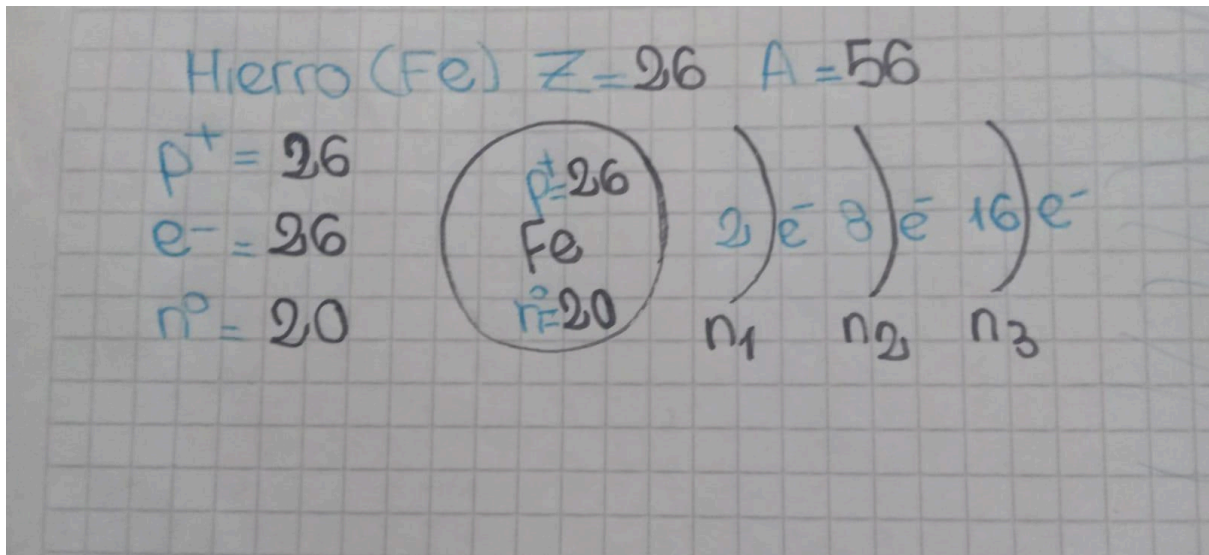 Hierro (Fe) Z=26 A=56
p⁺ = 26
e⁻ = 26
n° = 20
p⁺=26
Fe
n°=20
2)e⁻ 8)e⁻ 16)e⁻
n₁ n₂ n₃